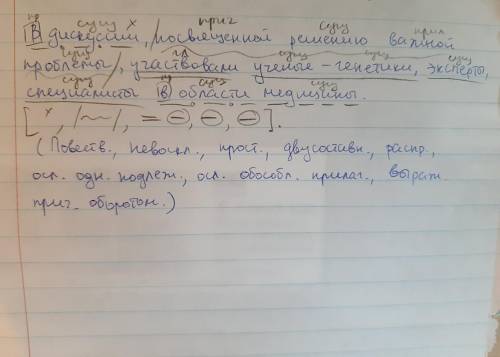 пр сущ х прич сущ прил
В дискуссии, /посвещенной решению важной
сущ гл сущ сущ сущ
проблемы/, участвовали ученые-генетики, эксперты,
сущ пр сущ сущ
специалисты В области медицины.
[ х, /~/, = О, О, О ].
(Повеств., невоскл., прост., двусоставн., распр.,
осл. одн. подлеж., осл. обособл. прилаг., выраж.
прич. оборотом.)